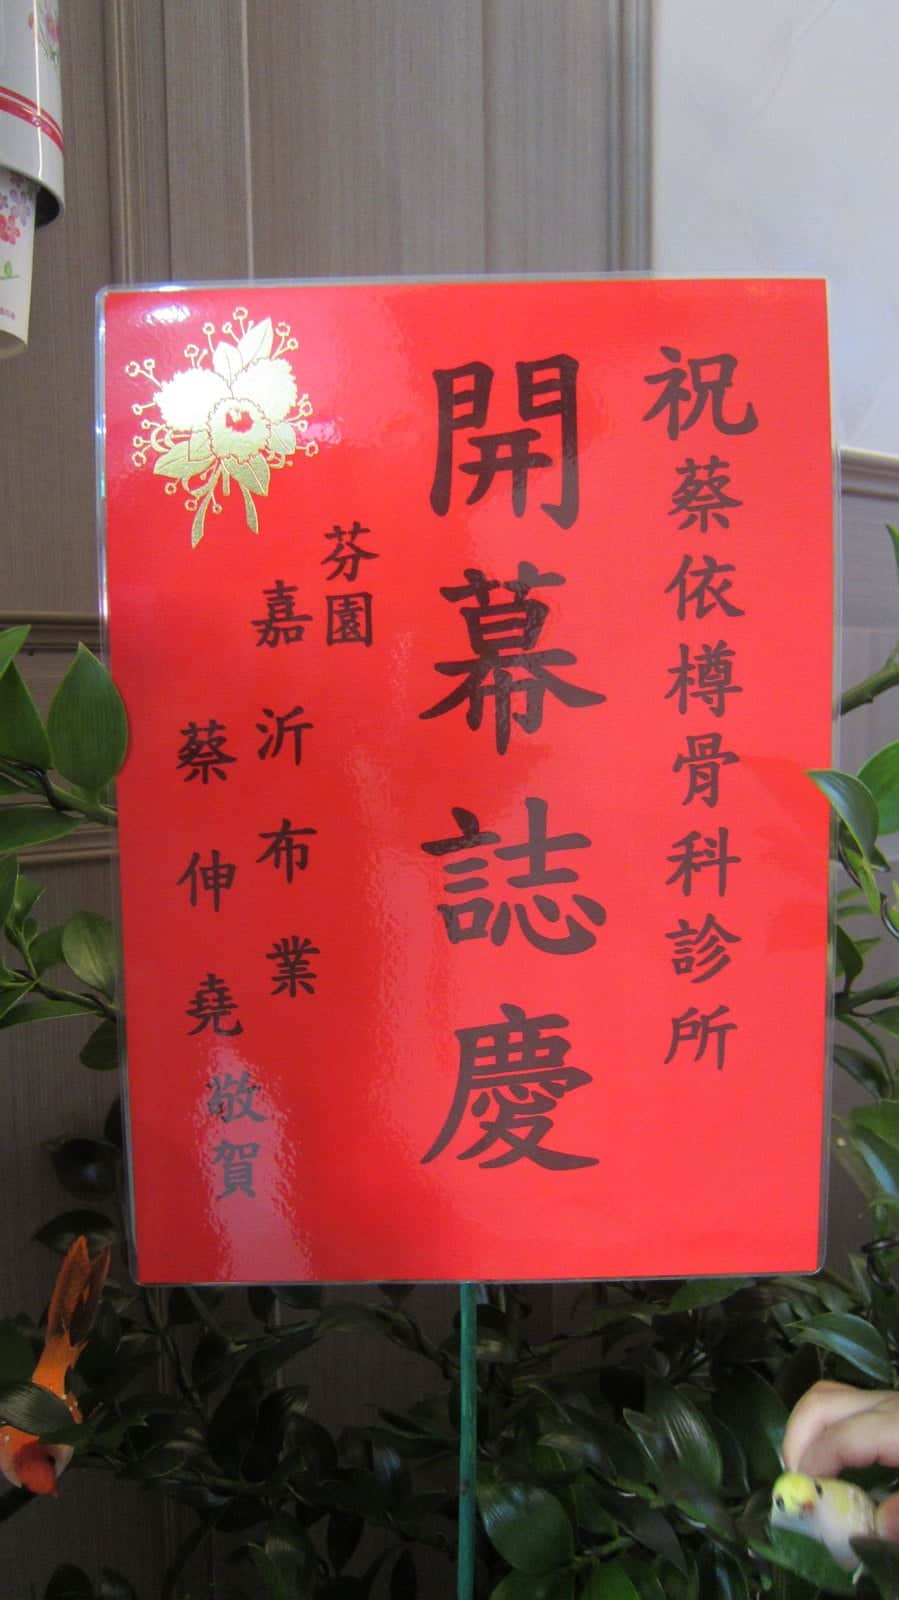 祝蔡依樽骨科診所
開幕誌慶
芬園
嘉沂布業
蔡伸堯敬賀